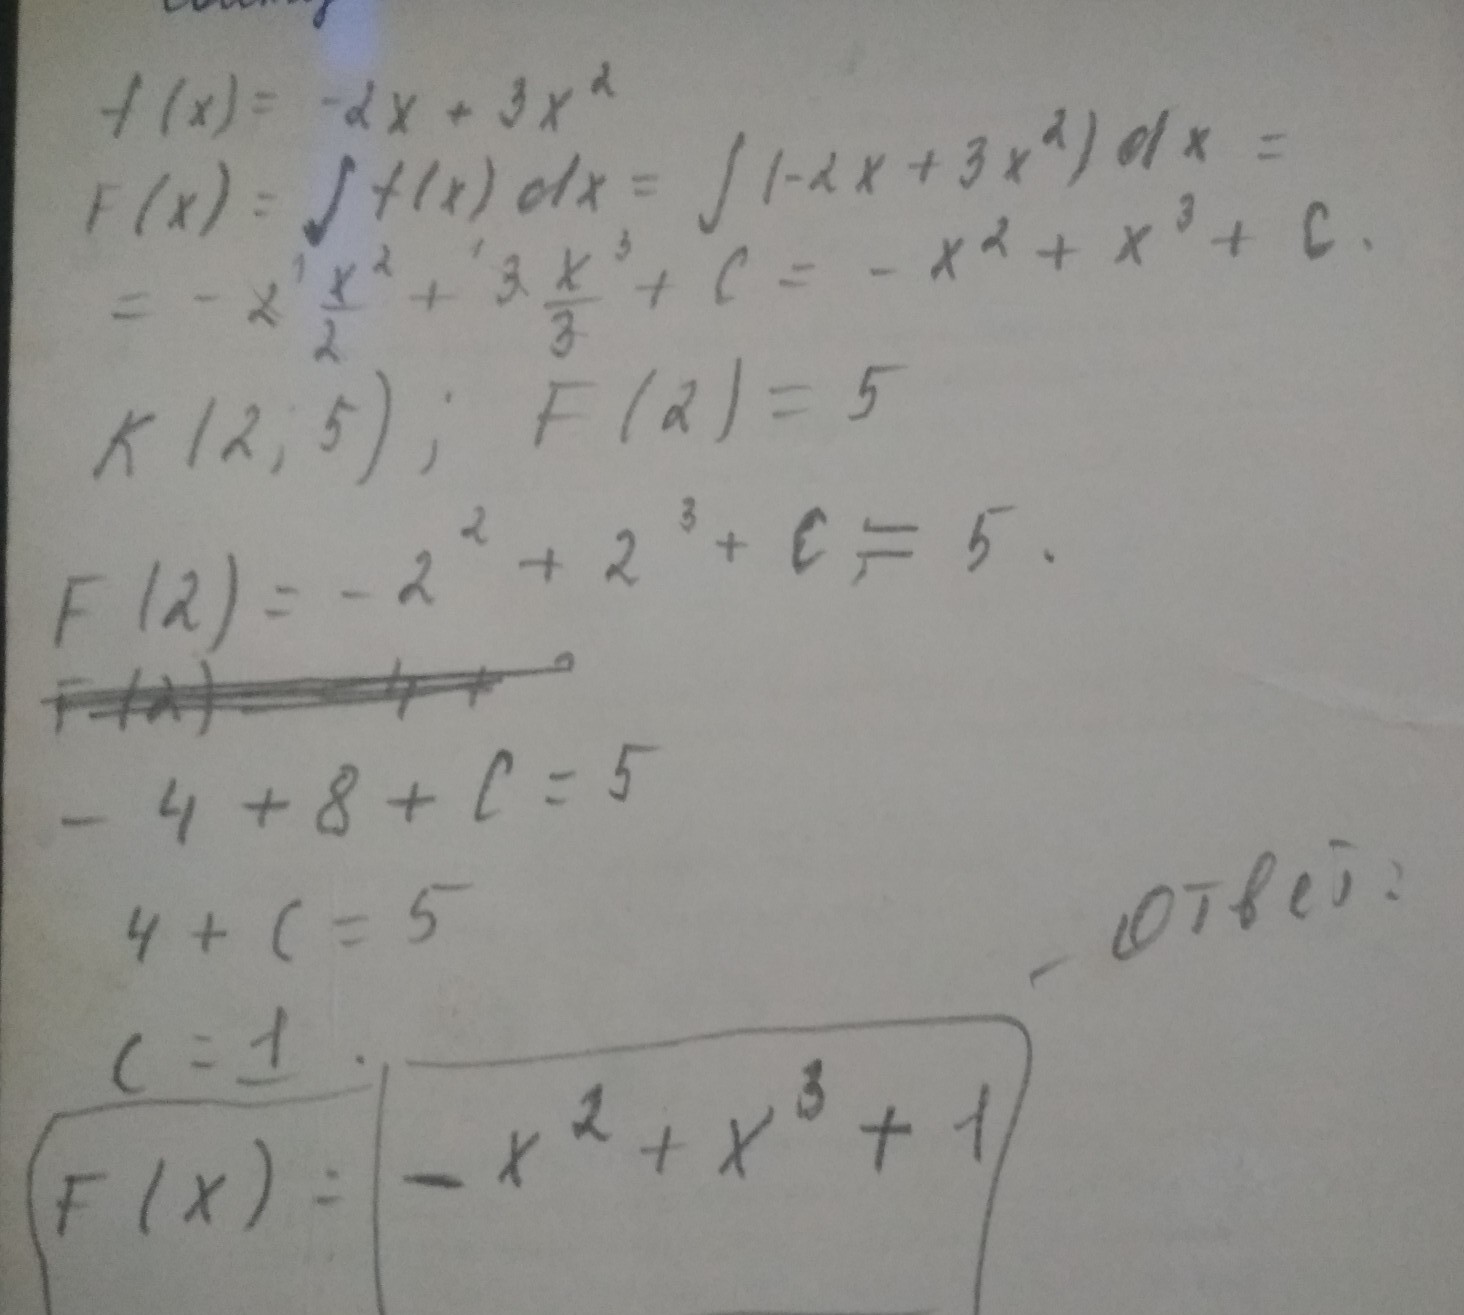 f(x) = -2x + 3x²
F(x) = ∫ f(x) dx = ∫ (-2x + 3x²) dx =
= - 2¹ x²/2 + ¹3 x³/3 + C = - x² + x³ + C.
K(2; 5); F(2) = 5
F(2) = - 2² + 2³ + C = 5.
- 4 + 8 + C = 5
4 + C = 5
- Ответ:
C = 1.
F(x) = - x² + x³ + 1